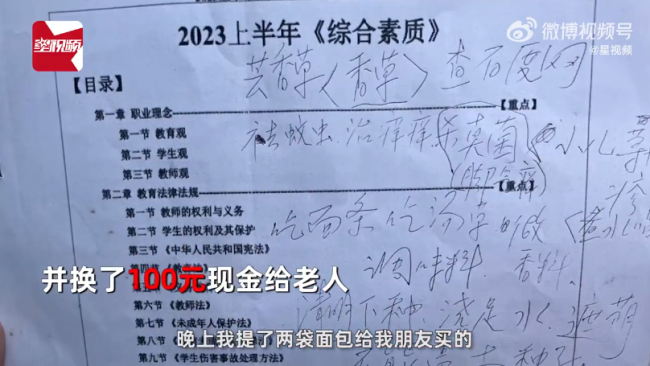 星视频
微博视频号
@星视频
2023上半年《综合素质》
芸香草〈香草〉查百度网
【目录】
第一章 职业理念
【重点】
第一节 教育观
祛蚊虫.治痒痒杀真菌 小儿
第二节 学生观
第三节 教师观
第二章 教育法律法规
【重点】
第一节 教师的权利与义务
吃面条吃汤
第二节 学生的权利及其保护
第三节 《中华人民共和国宪法》
调味料.香料.
并换了100元现金给老人
第六节 《教师法》
清明下种.浇足水.遮萌
第七节 《未成年人保护法》
第八节
晚上我提了两袋面包给我朋友买的
第九节 《学生伤害事故处理方法》